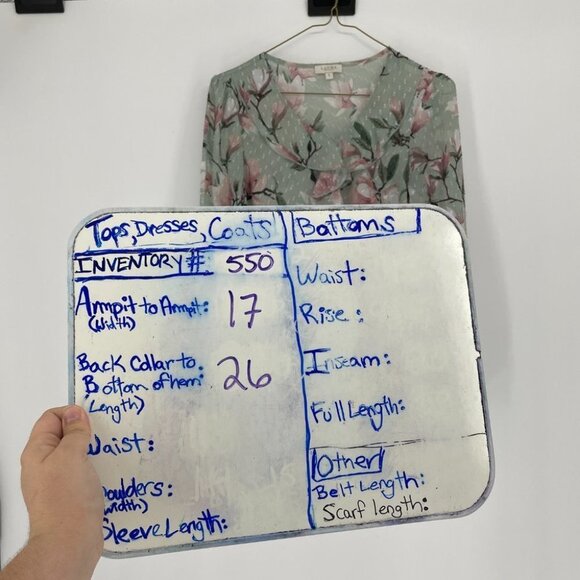 Tops, Dresses, Coats
INVENTORY #: 550
Armpit to Armpit: 17
(Width)
Back Collar to
Bottom of hem: 26
(Length)
Waist:
Shoulders:
(width)
Sleeve Length:
Bottoms
Waist:
Rise:
Inseam:
Full Length:
Other
Belt Length:
Scarf length: